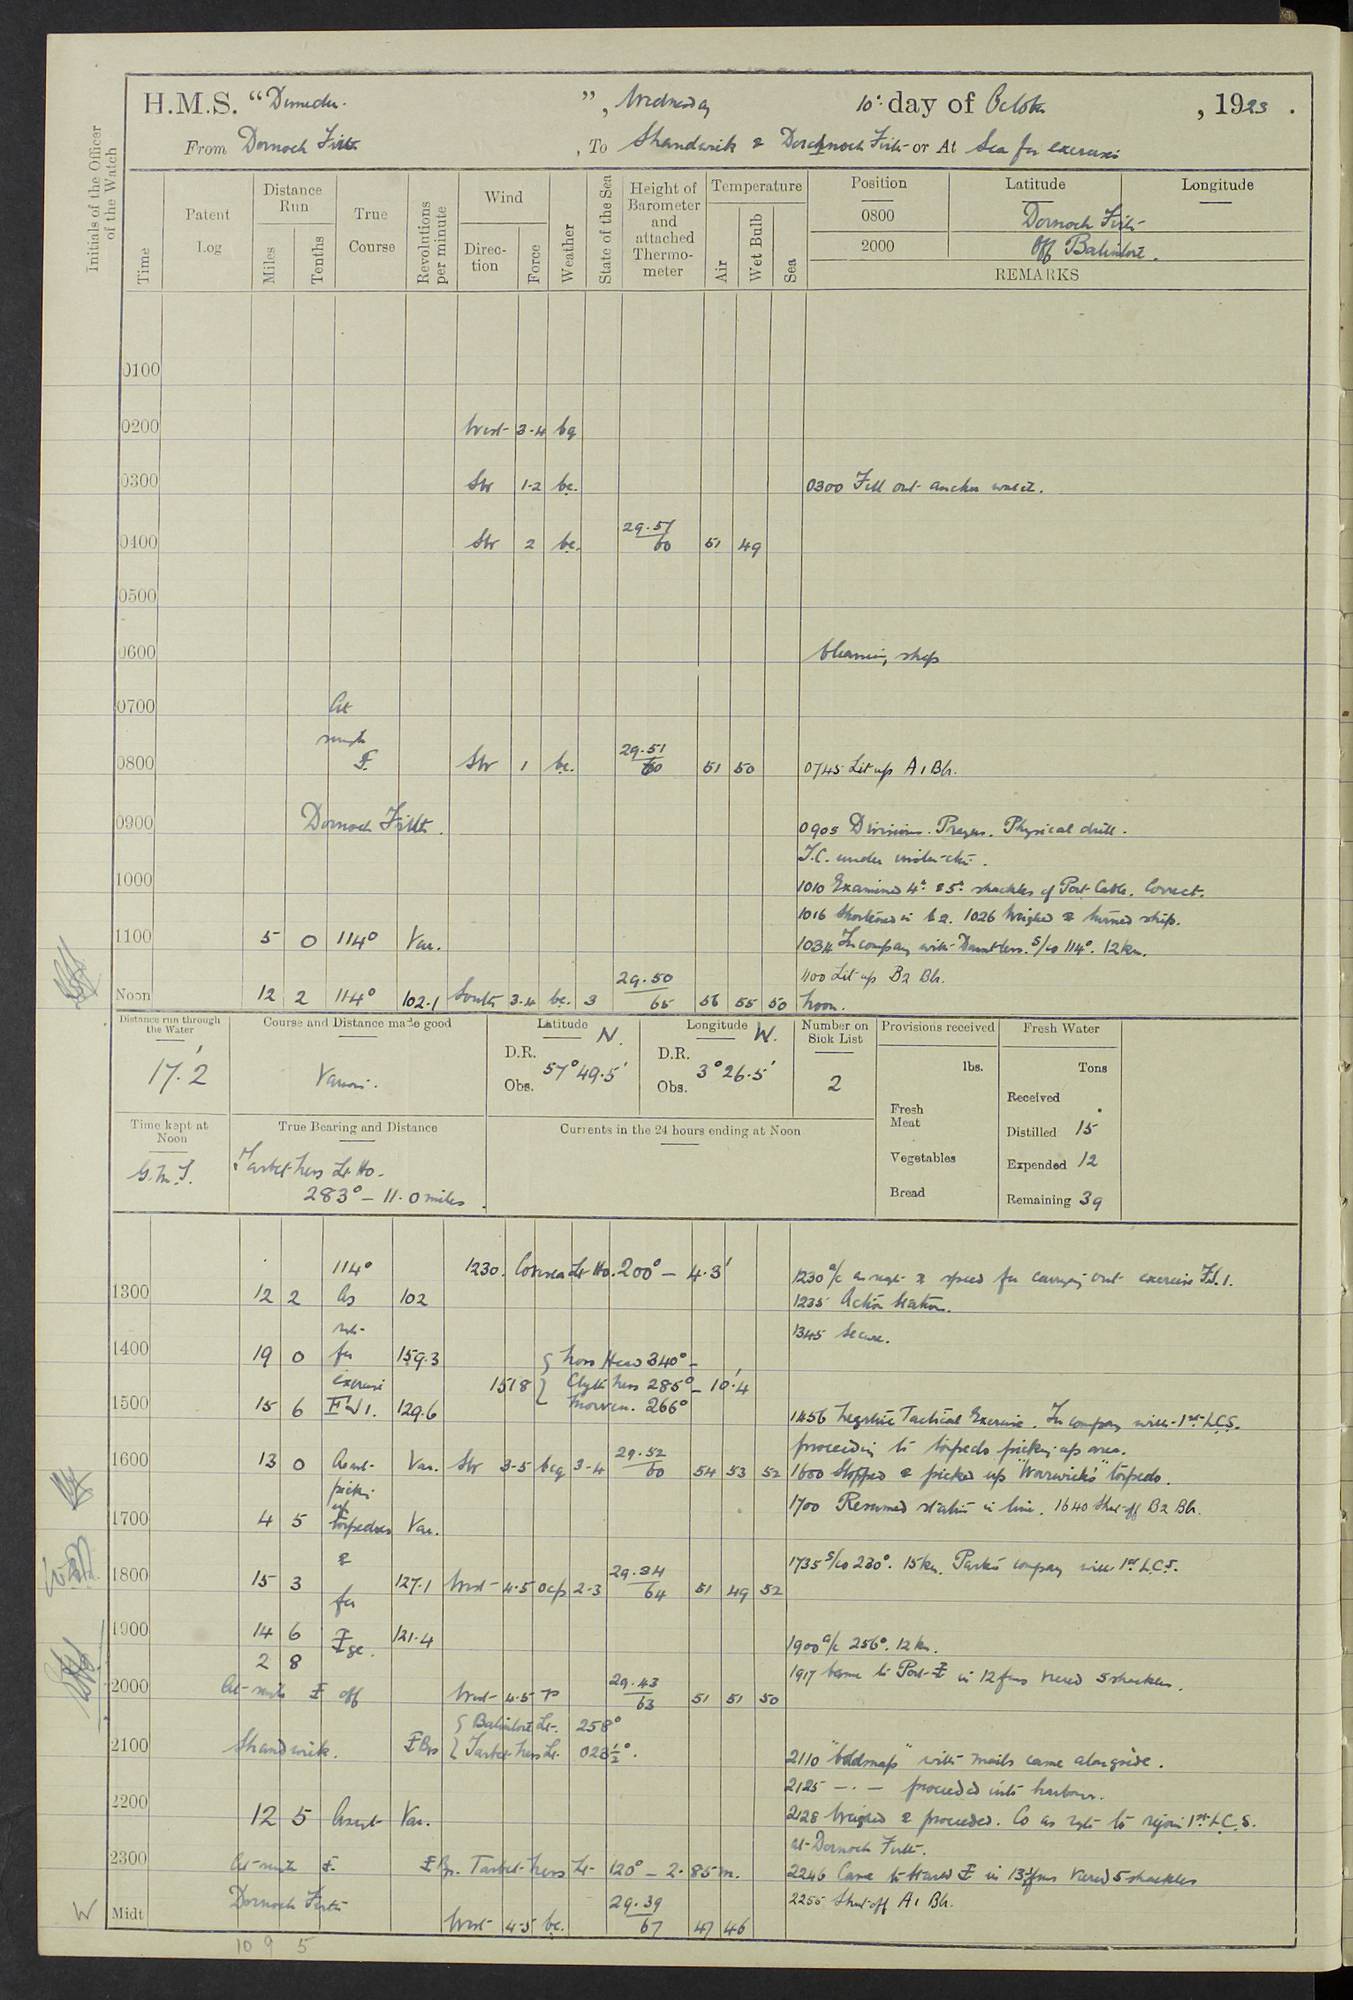 Initials of the Officer of the Watch
H.M.S. " ", Wednesday 10th day of October, 1923.
From Dornoch Firth, To Shandwick & Dornoch Firth or At Sea for exercises
Time
Patent Log
Distance Run
Miles
Tenths
True Course
Revolutions per minute
Wind
Direction
Force
Weather
State of the Sea
Height of Barometer and attached Thermometer
Temperature
Air
Wet Bulb
Sea
Position Latitude Longitude
0800 Dornoch Firth
2000 Off Balintore.
REMARKS
0100
0200 West 3-4 bq
0300 SW 1-2 bc. 0300 Fell out anchor watch.
0400 SW 2 bc. 29.51 60 51 49
0500
0600 Cleaning ship
0700 At
single
0800 SW 1 bc. 29.51 60 51 50 0745 Lit up A1 Blr.
0900 Dornoch Firth. 0905 Divisions. Prayers. Physical drill.
T.C. under
1000 1010 Examined 4th & 5th shackles of Port Cable. Correct.
1016 Shortened in to 2. 1026 Weighed & turned ship.
1100 5 0 114° Var. 1034 In company with Dauntless. S/co 114°. 12 kn.
1100 Lit up B2 Blr.
Noon 12 2 114° 102.1 South 3-4 bc. 3 29.50 65 56 55 50 Noon.
Distance run through the Water
17.2'
Course and Distance made good
Various.
Latitude N.
D.R.
Obs.
57° 49.5'
Longitude W.
D.R.
Obs.
3° 26.5'
Number on Sick List
2
Provisions received
lbs.
Fresh Meat
Vegetables
Bread
Fresh Water
Tons
Received
Distilled 15
Expended 12
Remaining 39
Time kept at Noon
G.M.T.
True Bearing and Distance
Tarbet Ness Lt. Ho.
283° – 11.0 miles.
Currents in the 24 hours ending at Noon
114° 1230. Covesea Lt. Ho. 200° – 4.3' 1230 a/c as reqte & speed for carrying out exercise F.J.1.
1300 12 2 As 102 1235 Action Stations.
1345 Secure.
1400 19 0 for 159.3 Noss Head 340° –
exercise 1518 Clyth Ness 285° – 10'.4
1500 15 6 129.6 Morven. 266°
1456 Negative Tactical Exercise. In company with 1st L.C.S.
proceeding to torpedo picking up area.
1600 13 0 Var. SW 3-5 bcq 3-4 29.52 60 54 53 52 1600 Stopped & picked up "Warwick's" torpedo.
picking
up 1700 Resumed station in line. 1640 Shut off B2 Blr.
1700 4 5 torpedoes Var.
& 1735 S/co 230°. 15 kn. Parted company with 1st L.C.S.
1800 15 3 127.1 West 4-5 ocp 2-3 29.34 64 51 49 52
for
1900 14 6 121.4 1900 a/c 256°. 12 kn.
2 8 ge. 1917 Came to Port in 12 fms veered 5 shackles.
2000 At single off West 4-5 r 29.43 63 51 51 50
Balintore Lt. 258°
2100 Shandwick. Brs Tarbet Ness Lt. 023½°.
2110 with mails came alongside.
2125 – . – proceeded into harbour.
2200 12 5 Var. 2128 Weighed & proceeded. Co as reqte to rejoin 1st L.C.S.
at Dornoch Firth.
2300 At single Brs. Tarbet Ness Lt. 120° – 2.85 m. 2246 Came to Starbd in 13½ fms veered 5 shackles
Dornoch Firth 29.39 2255 Shut off A1 Blr.
W Midt West 4-5 bc. 67 47 46
109 5